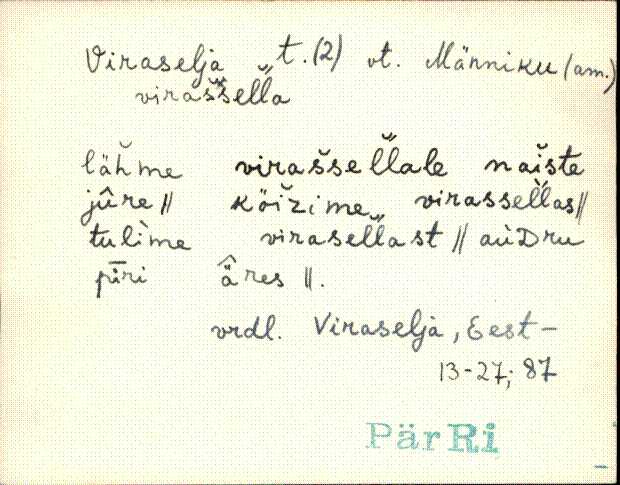 Viraselja t. (2) vt. Männiku (am.)
virašsella
lähme virašsellale naiste
jûre || köizime virassellas ||
tulìme virasellast || auDru
pīri äres ||.
vrdl. Viraselja, Eest-
13-27; 87
PärRi